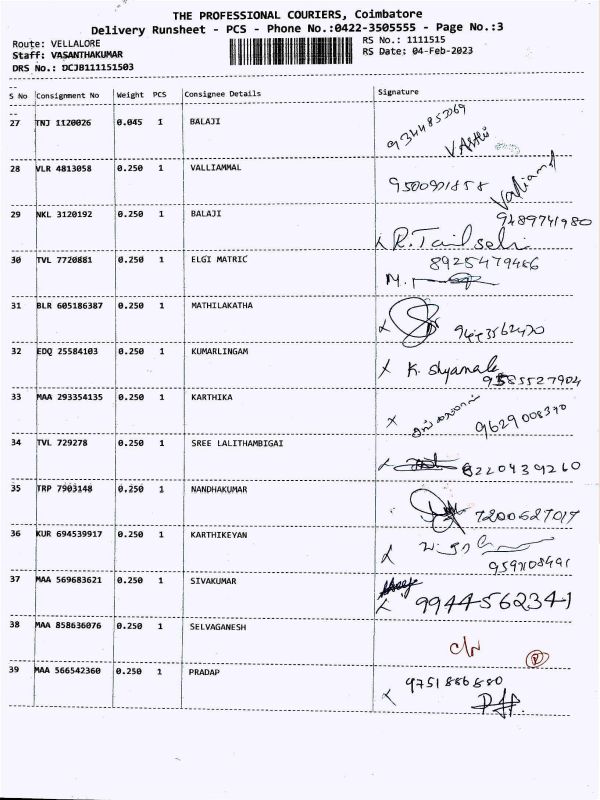 THE PROFESSIONAL COURIERS, Coimbatore
Delivery Runsheet - PCS - Phone No.:0422-3505555 - Page No.:3
Route: VELLALORE RS No.: 1111515
Staff: VASANTHAKUMAR RS Date: 04-Feb-2023
DRS No.: DCJB111151503
S No Consignment No Weight PCS Consignee Details Signature
27 TNJ 1120026 0.045 1 BALAJI
28 VLR 4813058 0.250 1 VALLIAMMAL
29 NKL 3120192 0.250 1 BALAJI 9489741980
30 TVL 7720881 0.250 1 ELGI MATRIC 8925479466
31 BLR 605186387 0.250 1 MATHILAKATHA
32 EDQ 25584103 0.250 1 KUMARLINGAM K. Shyamala
33 MAA 293354135 0.250 1 KARTHIKA
34 TVL 729278 0.250 1 SREE LALITHAMBIGAI 8220439260
35 TRP 7903148 0.250 1 NANDHAKUMAR 7200627017
36 KUR 694539917 0.250 1 KARTHIKEYAN
37 MAA 569683621 0.250 1 SIVAKUMAR 9944562341
38 MAA 858636076 0.250 1 SELVAGANESH
39 MAA 566542360 0.250 1 PRADAP 9751886880